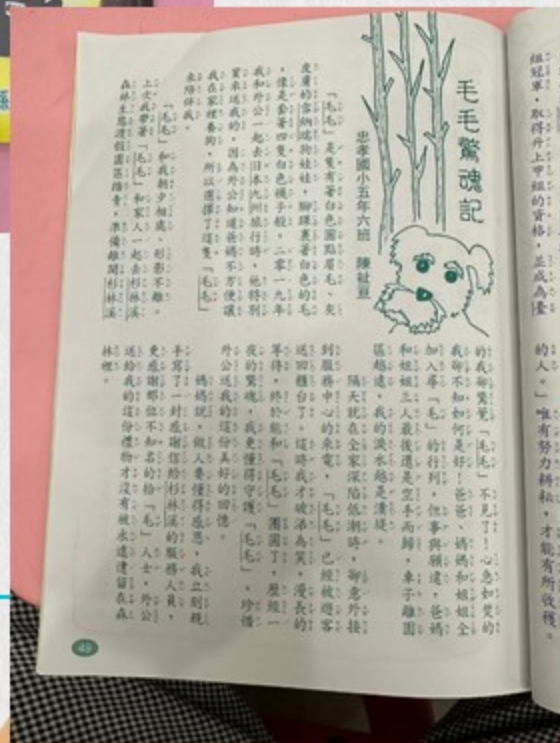 組冠軍，取得升上甲組的資格，並成為臺
的人。」唯有努力耕耘，才能有所收穫。
毛毛驚魂記
忠孝國小五年六班 陳
「毛毛」是隻有著白色圓點眉毛、灰
皮膚的雪納瑞狗娃娃，腳踝裹著白色的毛
，像是套著四隻白色襪子般，二零一九年
我和外公一起去日本九州旅行時，他特別
買來送我的，因為外公知道爸媽不方便讓
我在家裡養狗，所以選擇了這隻「毛毛」
來陪伴我。
「毛毛」和我朝夕相處、形影不離。
上次我帶著「毛毛」和家人一起去杉林溪
森林生態渡假園區踏青，準備離開杉林溪
的我卻驚覺「毛毛」不見了！心急如焚的
我卻不知如何是好！爸爸、媽媽和姐姐全
加入尋「毛」的行列，但事與願違，爸媽
和姐姐三人最後還是空手而歸，車子離園
區越遠，我的淚水越是潰堤。
隔天就在全家深陷低潮時，卻意外接
到服務中心的來電，「毛毛」已經被遊客
送回櫃台了。這時我才破涕為笑，漫長的
等待，終於能和「毛毛」團圓了，歷經一
夜的驚魂，我更懂得守護「毛毛」，珍惜
外公送我的這份美好的回憶。
媽媽說，做人要懂得感恩，我立刻親
手寫了一封感謝信給杉林溪的服務人員，
更感謝那位不知名的拾「毛」人士，外公
送給我的這份禮物才沒有被永遠遺留在森
林裡。
49